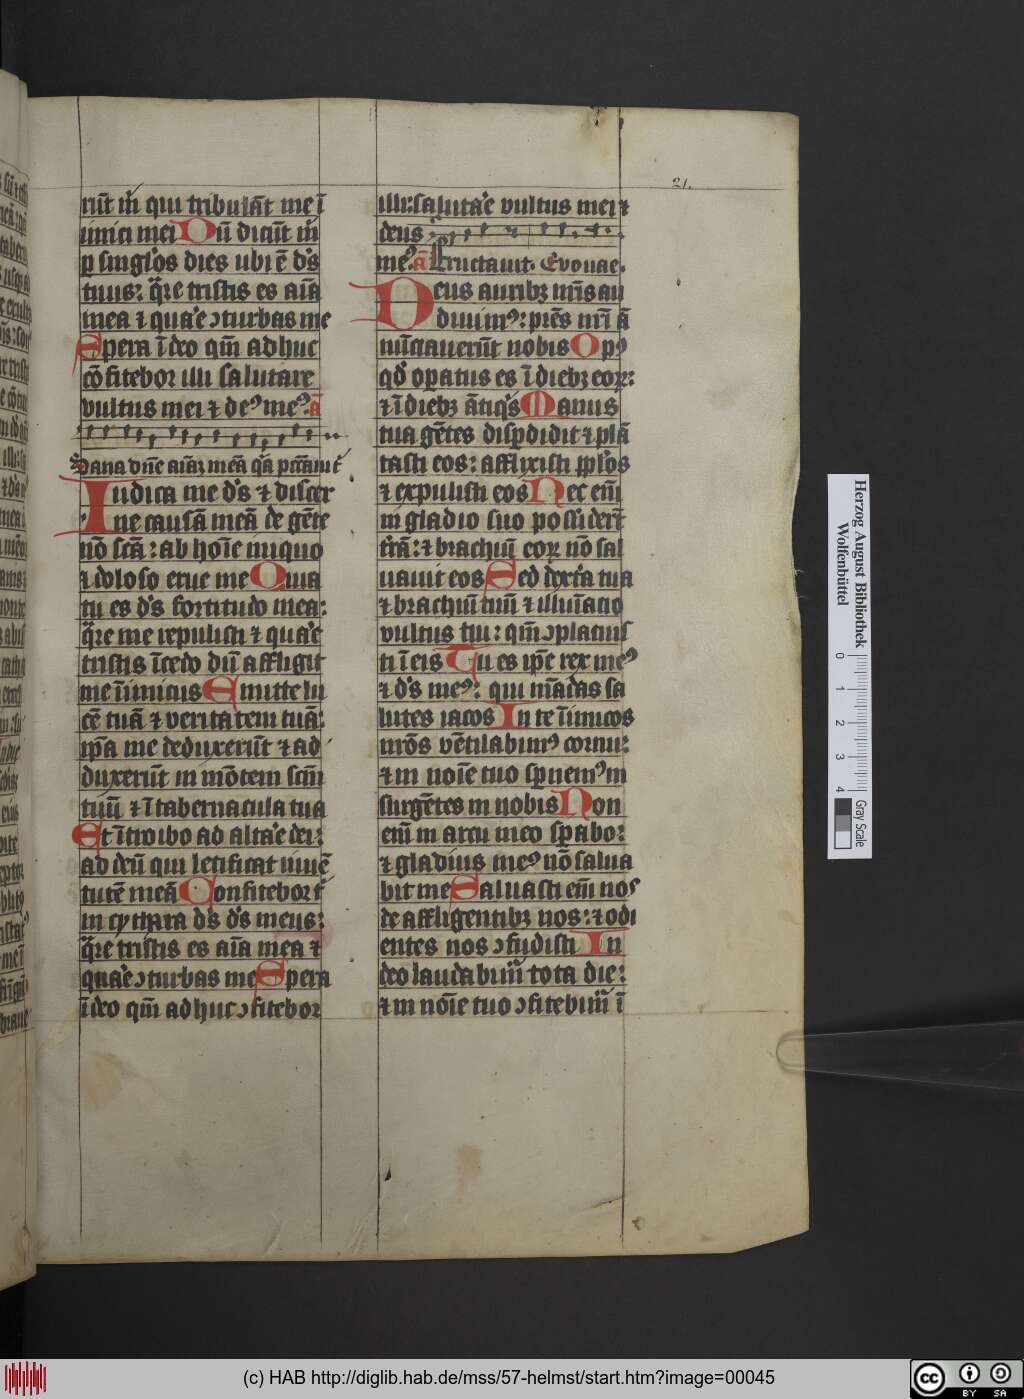 21.
rūt m̄ qui tribulāt me ī
imici mei Dū dicūt m̄
p singl'os dies ubi ē d's
tuus: q̄re tristis es aīa
mea ⁊ qua'e ↄturbas me
Spera ī deo qm̄ adhuc
cōfitebor illi salutare
vultus mei ⁊ de⁹ me⁹. ā
Sana dn̄e aīaꝫ meā q'a pccāui t'
Iudica me d's ⁊ discer
ne causā meā de gēte
nō scā: ab hoīe iniquo
⁊ doloso erue me Quia
tu es d's fortitudo mea:
q̄re me repulisti ⁊ qua'e
tristis īcedo dū affligit
me īimicus Emitte lu
cē tuā ⁊ veritatem tuā:
ip̄a me deduxerūt ⁊ ad
duxerūt in mōtem scm̄
tuū ⁊ ī tabernacula tua
Et ītroibo ad alta'e dei:
ad deū qui letificat iuuē
tutē meā Confitebor t'
in cythara d's d's meus:
q̄re tristis es aīa mea ⁊
qua'e ↄturbas me Spera
ī deo qm̄ adhuc ↄfitebor
illi: saluta'e vultus mei ⁊
deus
me⁹. ā Eructauit. Evouae.
Deus auribꝫ nr̄is au
diuim⁹: pr̄es nr̄i ā
nūciauerūt nobis Op⁹
qd' opatus es ī diebꝫ eoꝝ:
⁊ ī diebꝫ ātiq's Manus
tua gētes dispdidit ⁊ plā
tasti eos: afflixisti ppl'os
⁊ expulisti eos Nec em̄
in gladio suo possiderūt
t'rā: ⁊ brachiū eoꝝ nō sal
uauit eos Sed dext'a tua
⁊ brachiū tuū ⁊ illuīacio
vultus tui: qm̄ ↄplacuis
ti ī eis Tu es ip̄e rex me⁹
⁊ d's me⁹: qui mādas sa
lutes iacob In te īimicos
nr̄os vētilabim⁹ cornu:
⁊ in noīe tuo spnem⁹ in
surgētes in nobis Non
em̄ in arcu meo spabo:
⁊ gladius me⁹ nō salua
bit me Saluasti em̄ nos
de affligentibꝫ nos: ⁊ odi
entes nos ↄfudisti In
deo laudabimr̄ tota die:
⁊ in noīe tuo ↄfitebimr̄ ī
Herzog August Bibliothek
Wolfenbüttel
0 1 2 3 4
Gray Scale
(c) HAB http://diglib.hab.de/mss/57-helmst/start.htm?image=00045
cc BY SA